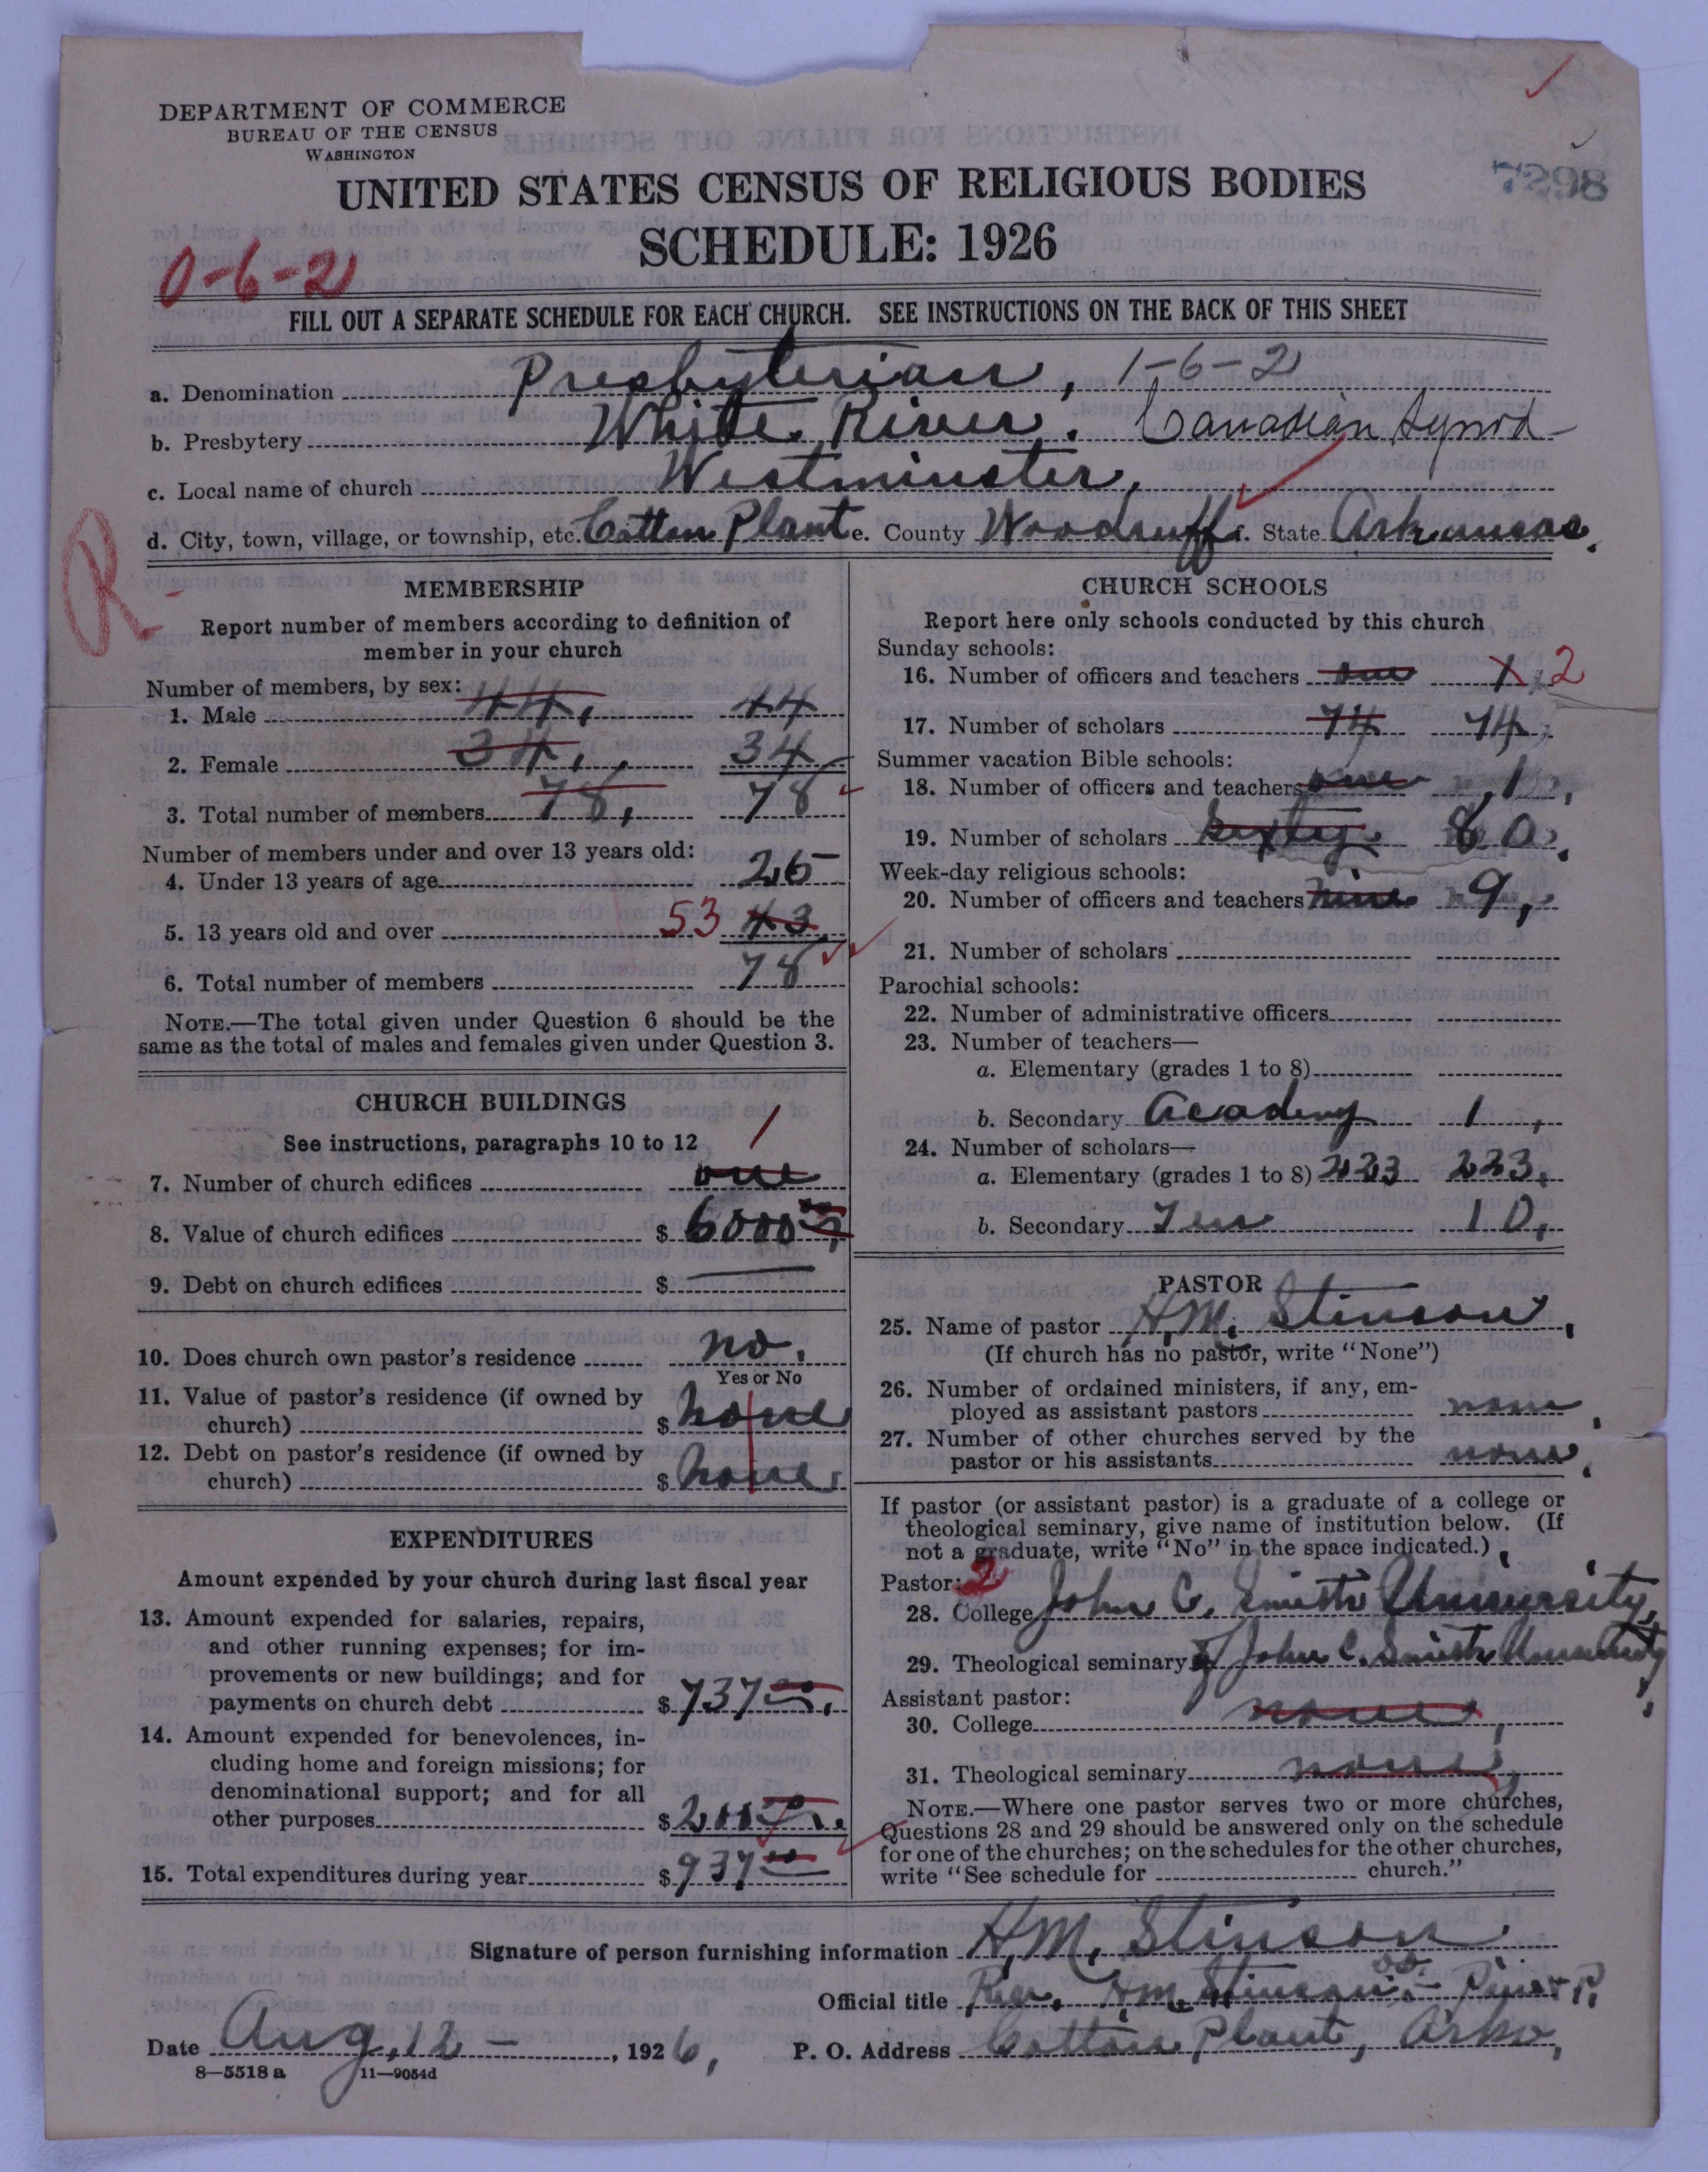 DEPARTMENT OF COMMERCE
BUREAU OF THE CENSUS
WASHINGTON
7298
UNITED STATES CENSUS OF RELIGIOUS BODIES
SCHEDULE: 1926
0-6-2
FILL OUT A SEPARATE SCHEDULE FOR EACH CHURCH. SEE INSTRUCTIONS ON THE BACK OF THIS SHEET
a. Denomination Presbyterian, 1-6-2
b. Presbytery White River. Canadian Synod
c. Local name of church Westminster,
d. City, town, village, or township, etc. Cotton Plant e. County Woodruff f. State Arkansas.
R-
MEMBERSHIP
Report number of members according to definition of
member in your church
Number of members, by sex:
1. Male 44, 44
2. Female 34, 34
3. Total number of members 78, 78
Number of members under and over 13 years old:
4. Under 13 years of age 25
5. 13 years old and over 53 43
6. Total number of members 78
NOTE.—The total given under Question 6 should be the
same as the total of males and females given under Question 3.
CHURCH BUILDINGS
See instructions, paragraphs 10 to 12
1
7. Number of church edifices one
8. Value of church edifices $ 6000 00
9. Debt on church edifices $
10. Does church own pastor's residence no.
Yes or No
11. Value of pastor's residence (if owned by
church) $ none
12. Debt on pastor's residence (if owned by
church) $ none
EXPENDITURES
Amount expended by your church during last fiscal year
13. Amount expended for salaries, repairs,
and other running expenses; for im-
provements or new buildings; and for
payments on church debt $ 737 00
14. Amount expended for benevolences, in-
cluding home and foreign missions; for
denominational support; and for all
other purposes $ 200
15. Total expenditures during year $ 937 00
CHURCH SCHOOLS
Report here only schools conducted by this church
Sunday schools:
16. Number of officers and teachers one 1 2
17. Number of scholars 74 74
Summer vacation Bible schools:
18. Number of officers and teachers one 1,
19. Number of scholars 80.
Week-day religious schools:
20. Number of officers and teachers nine 9,
21. Number of scholars
Parochial schools:
22. Number of administrative officers
23. Number of teachers—
a. Elementary (grades 1 to 8)
b. Secondary Academy 1,
24. Number of scholars—
a. Elementary (grades 1 to 8) 223 223,
b. Secondary Ten 10,
PASTOR
25. Name of pastor H.M. Stinson,
(If church has no pastor, write "None")
26. Number of ordained ministers, if any, em-
ployed as assistant pastors none.
27. Number of other churches served by the
pastor or his assistants none.
If pastor (or assistant pastor) is a graduate of a college or
theological seminary, give name of institution below. (If
not a graduate, write "No" in the space indicated.)
Pastor: 2
28. College John C. Smith University,
29. Theological seminary John C. Smith University,
Assistant pastor:
30. College none,
31. Theological seminary none,
NOTE.—Where one pastor serves two or more churches,
Questions 28 and 29 should be answered only on the schedule
for one of the churches; on the schedules for the other churches,
write "See schedule for church."
Signature of person furnishing information H.M. Stinson.
Official title Rev. H.M. Stinson
Date Aug, 12 — , 1926, P. O. Address Cotton Plant, Ark,
8—5518 a 11—9054d